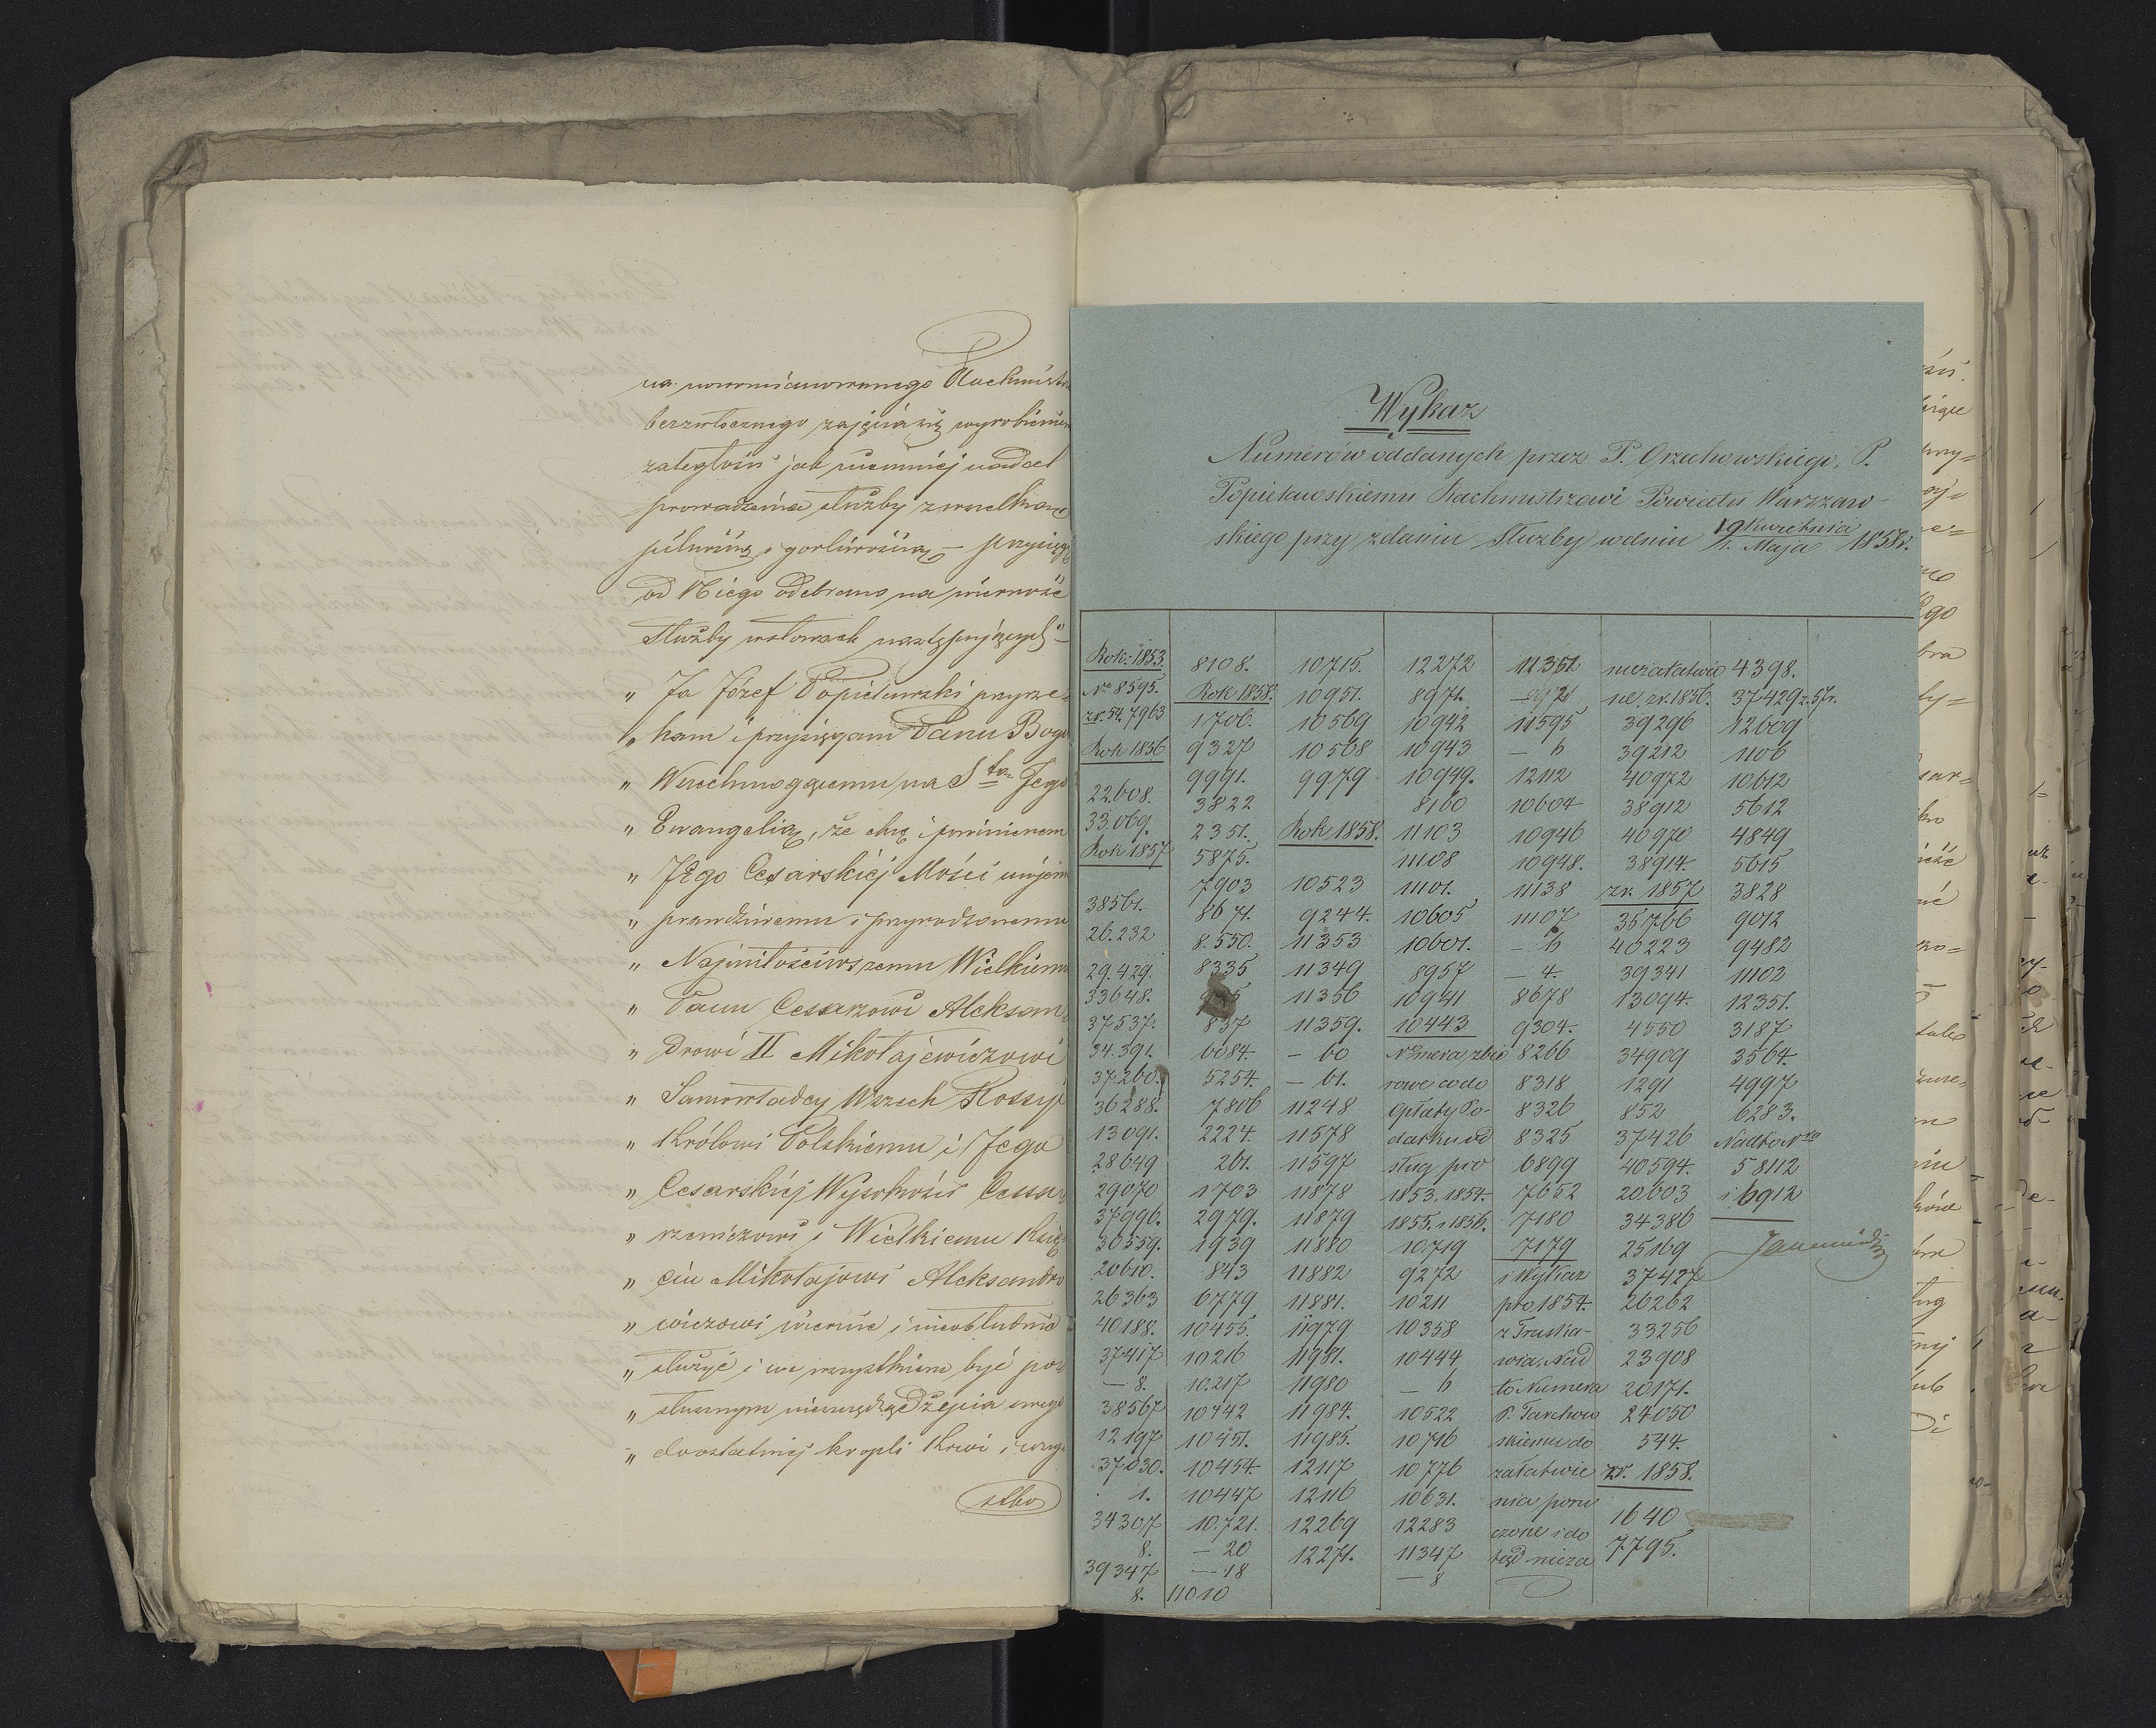 na nowomianowanego Rachmistr
bezzwłocznego zajęcia się wyrobieniem
zaległości jak niemniej nadal
prowadzenia służby z wszelką
pilnością i gorliwością – przysięgę
od Niego odebrano na wierność
Służby w słowach następujących –
„ Ja Józef Popielawski przyrze=
„ kam i przysięgam Panu Bogu
„ Wszechmogącemu na Stą Jego
„ Ewangelią, że chcę i powinienem
„ Jego Cesarskiéj Mości mojem
„ prawdziwemu i przyrodzonemu
„ Najmiłościwszemu Wielkiemu
„ Panu Cesarzowi Aleksan=
„ drowi II Mikołajewiczowi
„ Samowładcy Wszech Rossyi
„ Królowi Polskiemu i Jego
„ Cesarskiéj Wysokości Cesa
„ rzewiczowi i Wielkiemu Księ
„ ciu Mikołajowi Aleksandro
„ wiczowi wiernie i nieobłudnie
„ służyć i we wszystkiem być po
„ słusznym nieszczędząc życia swego
„ do ostatniej kropli krwi i wszy
Wykaz
Numerów oddanych przez P. Orzechowskiego, P.
Popielawskiemu Rachmistrzowi Powiatu Warszaw-
skiego przy zdaniu Służby w dniu 19 Kwietnia / 1. Maja 1858r.
Rok 1853.
No 8595.
zr. 54. 7963
Rok 1856
22.608.
33.069.
Rok 1857
38561.
26.232
29.429.
33648.
37537.
34.391.
37260.
36288.
13091.
28649
29070
37996.
30559.
20610.
26363
40188.
37417
— 8.
38567
12197
37030.
1.
34307
8.
39347
8.
8108.
Rok 1858.
1706.
9327
9991.
3822
2351.
5875.
7903
8671.
8.550.
8335
837
6084.
5254.
7806
2224.
261.
1703
2979.
1939
843
6779
10455.
10216
10.217
10442
10451.
10454
10447
10.721.
— 20
— 18
11010
10715.
10951.
10569
10568
9979
Rok 1858.
10523
9244.
11353
11349
11356
11359.
— 60
— 61.
11248
11578
11597
11878
11879
11880
11882
11881.
11979
11981.
11980
11984.
11985.
12117
12116
12269
12271.
12272
8971.
10942
10943
10949.
8160
11103
11108
11101.
10605
10601.
8957
10941
10443
Numera zbio
rowe co do
opłaty Po-
datku od
sług pro
1853. 1854.
1855. i 1856.
10719
9272
10211
10358
10444
— 6
10522
10716
10776
10631.
12283
11347
— 8
11351
11595
— 6
12112
10604
10946
10948.
11138
11107
— 6
— 4.
8678
9304.
8266
8318
8326
8325
6899
7652
7180
7179
i Wykaz
pro 1854.
z Truska-
wia, Nad
to Numera
P. Tarchow
skiemu do
załatwie
nia poru
czone i do
tąd nieza
niezałatwio
ne, zr. 1856.
39296
39212
40972
38912
40970
38914.
zr. 1857
35766
40223
39341
13094.
4550
34909
1291
852
37426
40594.
20603
34386
25169
37427
26262
33256
23908
20171.
24050
544.
zr. 1858.
1640
7795.
4398.
37429 z. 57r.
12609
1106
10612
5612
4849
5615
3828
9012
9482
11102
12351.
3187
3564.
4997
6283.
Nadto Nra
58112
i 6912